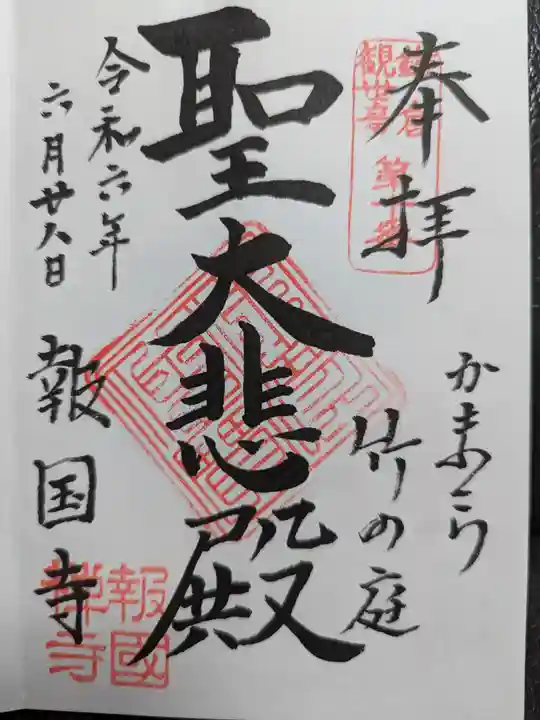 奉拝
かまくら
竹の庭
聖大悲殿
令和六年
六月廿八日
報国寺
報國
禅寺